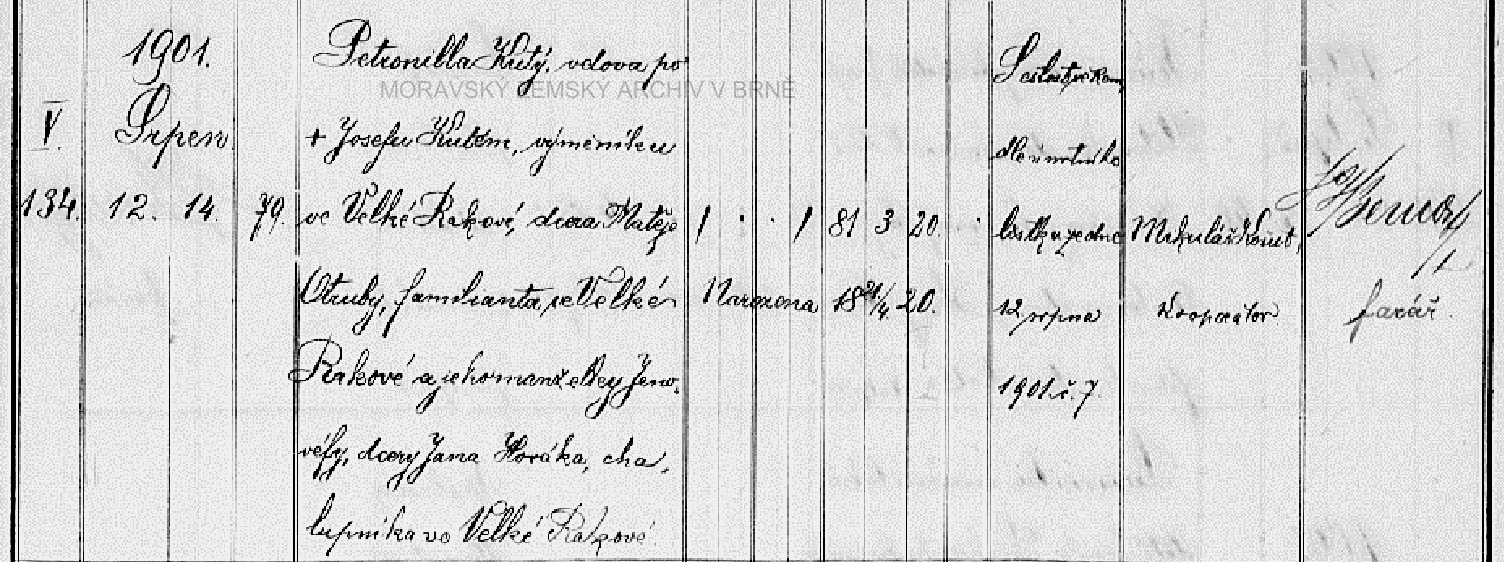 1901.
V.
Srpen
134. 12. 14. 79.
Petronilla Kutý, vdova po
+ Josefu Kutém, výměníku
ve Velké Rakové, dcera Matěje
Otruby, familianta, ve Velké
Rakové a jeho manželky Jeno-
véfy, dcery Jana Horáka, cha-
lupníka ve Velké Rakové.
MORAVSKÝ ZEMSKÝ ARCHIV V BRNĚ
1 · · 1 81 3 20.
Narozena 18 21/4 20.
Sešlost věkem
dle úmrtního
lístku ze dne
12 srpna
1901. č. 7.
Mikuláš
kooperátor
farář.